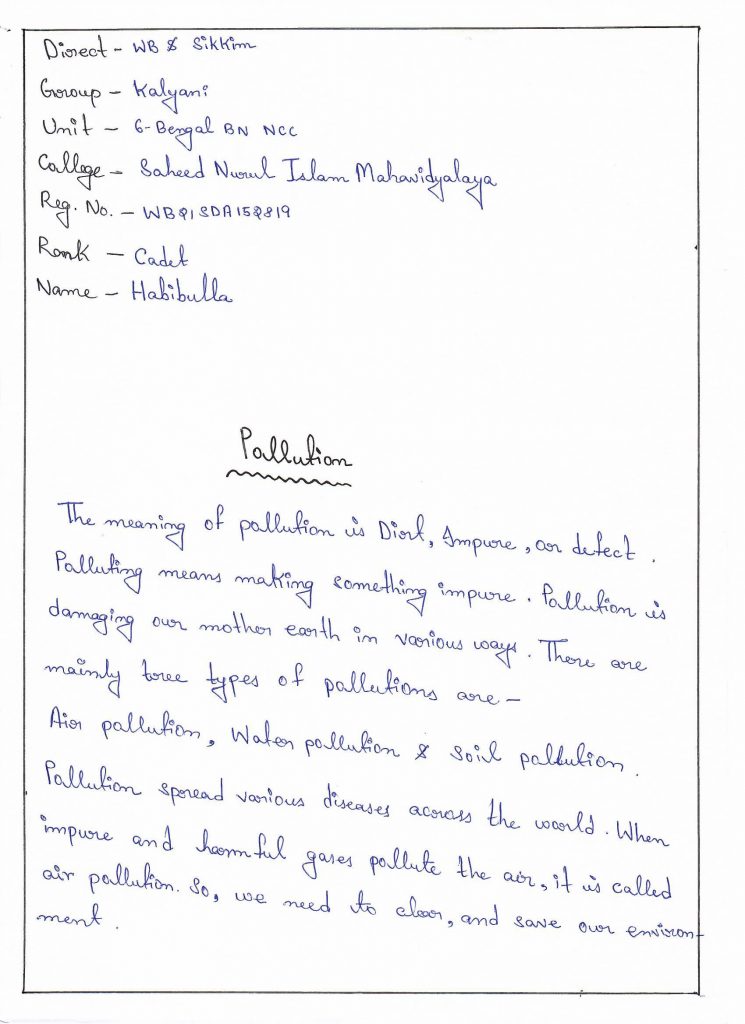 Direct - WB & Sikkim
Group - Kalyani
Unit - 6-Bengal BN NCC
College - Saheed Nurul Islam Mahavidyalaya
Reg. No. - WB21SDA152819
Rank - Cadet
Name - Habibulla
Pollution
The meaning of pollution is Dirt, Impure, or defect.
Polluting means making something impure. Pollution is
damaging our mother earth in various ways. There are
mainly tree types of pollutions are -
Air pollution, Water pollution & soil pollution.
Pollution spread various diseases across the world. When
impure and harmful gases pollute the air, it is called
air pollution. So, we need to clear, and save our environ-
ment.